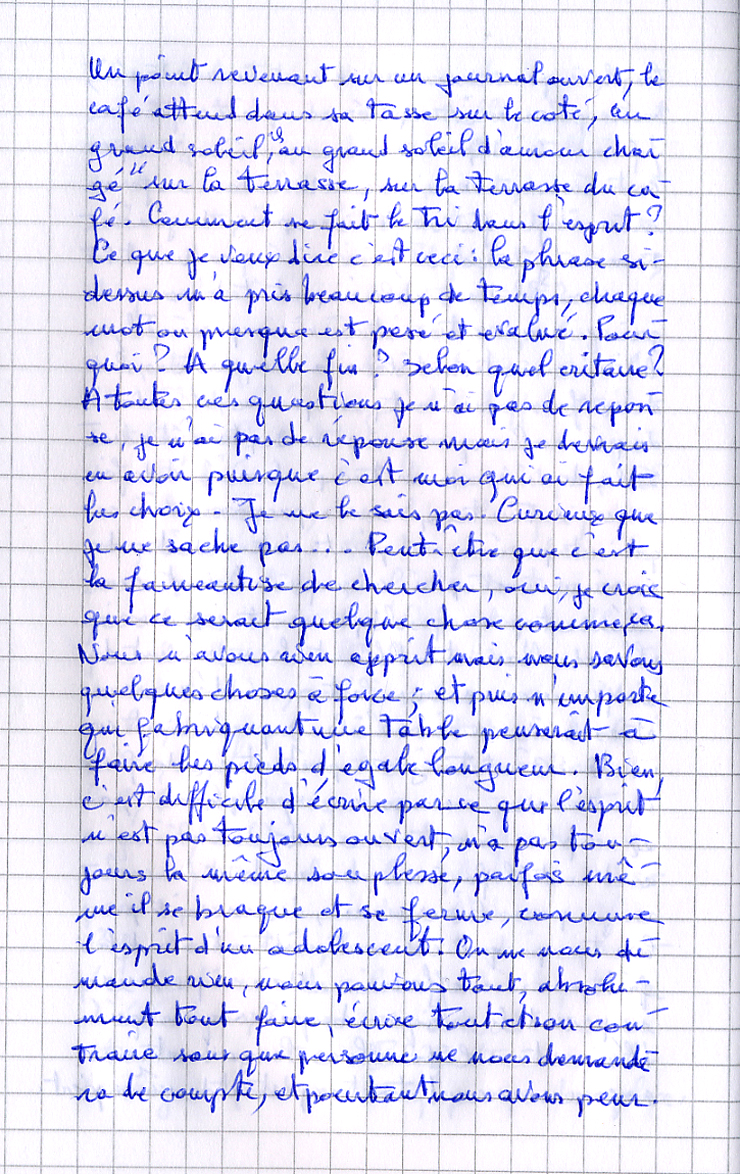 Un point revenant sur un journal ouvert, le
café attend dans sa tasse sur le coté, au
grand soleil, "au grand soleil d'amour char
gé" sur la terrasse, sur la terrasse du ca-
fé. Comment se fait le tri dans l'esprit?
Ce que je veux dire c'est ceci: la phrase ci-
dessus m'a pris beaucoup de temps, chaque
mot ou presque est pesé et évalué. Pour
quoi? A quelle fin? Selon quel critaire?
A toutes ces questions je n'ai pas de répon
se, je n'ai pas de réponse mais je devrais
en avoir puisque c'est moi qui ai fait
les choix. Je ne le sais pas. Curieux que
je ne sache pas... Peut-être que c'est
la faineantise de chercher, oui, je crois
que ce serait quelque chose comme ça.
Nous n'avons rien apprit mais nous savons
quelques choses à force; et puis n'importe
qui fabriquant une table penserait à
faire les pieds d'égale longueur. Bien,
c'est difficile d'écrire parce que l'esprit
n'est pas toujours ouvert, n'a pas tou-
jours la même souplesse, parfois mê-
me il se braque et se ferme, comme
l'esprit d'un adolescent. On ne nous de
mande rien, nous pouvons tout, absolu-
ment tout faire, écrire tout et son con
traire sans que personne ne nous demande
ra de compte, et pourtant nous avons peur.